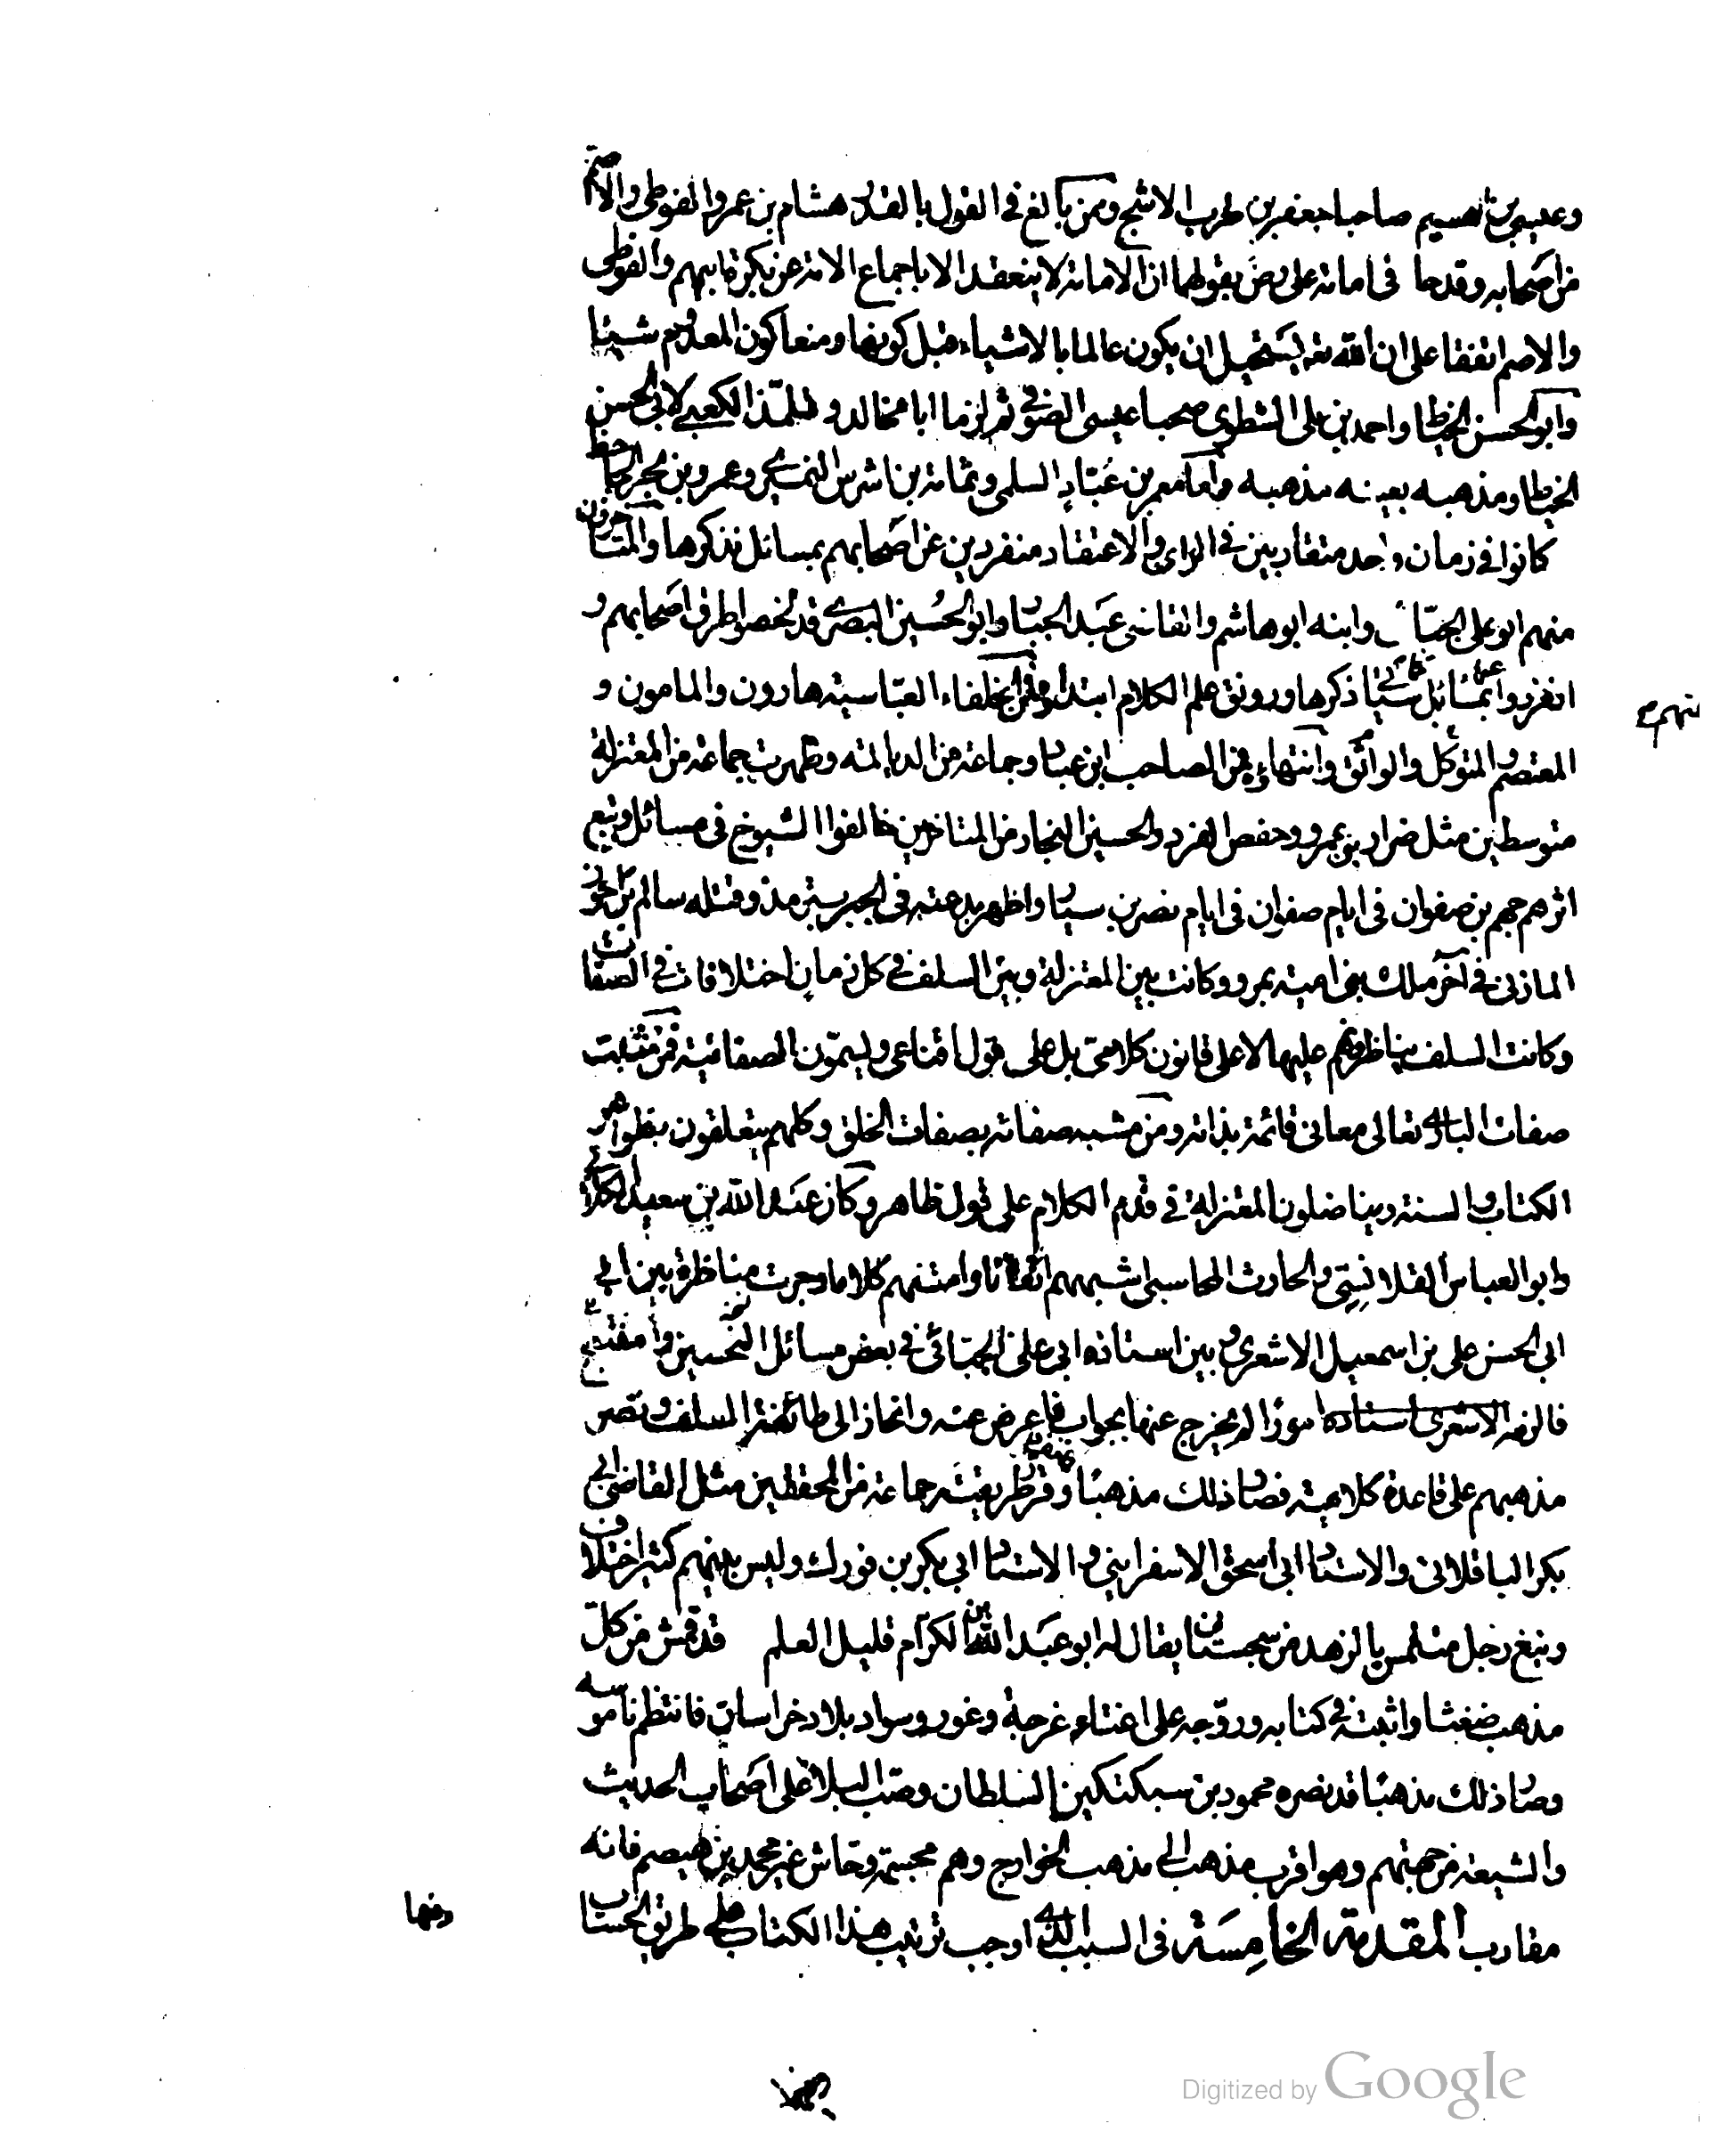 وعيسى بن الهسيم صاحبا جعفر بن حرب الاشج وممن بالغ في القول بالقدر هشام بن عمرو الفوطي والاصم
من اصحابه وقدحا في امامة على رض بقولهما ان الامامة لا ينعقد الا باجماع الامة عن بكرة ابيهم والفوطى
والاصم اتفقا على ان الله تعـ يستحيل ان يكون عالما بالاشياء قبل كونها ومنعا كون المعدوم شيئا
وابو الحسن الخياط واحمد بن على الشطوى صحبا عيسى الصوفي ثم لزما ابا مخالد وتلمّذ الكعبي لابى الحسن
الخياط ومذهبه بعينه مذهبه واما معمر بن عبّاد السلمى وثمامة بن اشرس النميرى وعمرو بن بحر الجاحظ
كانوا في زمان واحد متقاربين في الراى والاعتقاد منفردين عن اصحابهم بمسائل نذكرها والمتاخرون
منهم ابو على الجبّائى وابنه ابو هاشم والقاضى عبد الجبار وابو الحسين البصرى قد لخصوا طرق اصحابهم و
انفردوا عنهم بمسائل سياتى ذكرها ورونق علم الكلام ابتداؤه فمن الخلفاء العبّاسية هارون والمامون و
المعتصم والمتوكل والواثق وانتهاؤه فمن الصاحب ابن عباد وجماعة من الديالمه وظهرت جماعة من المعتزلة
منهم
متوسطين مثل ضرار بن عمرو وحفص الفرد والحسين النجار من المتاخرين خالفوا الشيوخ في مسائل وتبع
اثرهم جهم بن صفوان في ايام صفوان في ايام نصر بن سيار واظهر بدعته في الجبر بترمذ وقتله سالم بن احوز
المازنى في آخر ملك بنى امية بمرو وكانت بين المعتزلة وبين السلف في كل زمان اختلافات في الصفات
وكانت السلف يناظرونهم عليها لا على قانون كلامىّ بل على قول اقناعى ويسمّون الصفاتية فمن مثبت
صفات البارى تعالى معانى قائمة بذاته ومن مشبه صفاته بصفات الخلق وكلهم يتعلقون بظواهر
الكتاب والسنة ويناضلون المعتزلة في قدم الكلام على قول ظاهر وكان عبد الله بن سعيد الكلابى
وابو العباس القلانسى والحارث المحاسبى اشبههم اتقانا وامتنهم كلاما وجرت مناظرة بين ابى
ابى الحسن على بن اسمعيل الاشعرى وبين استاذه ابى على الجبّائى في بعض مسائل التحسين والتقبيح
فالزم الاشعرى استاده امورًا لم يخرج عنها بجواب فاعرض عنه وانحاز الى طائفة السلف ونصر
مذهبهم على قاعدة كلامية فصار ذلك مذهبًا وقرر طريقته جماعة من المحققين مثل القاضى ابى
بكر الباقلانى والاستاد ابى اسحق الاسفراينى والاستاد ابى بكر بن فورك وليس بينهم كثير اختلاف
ونبغ رجل متلمس بالزهد من سجستان يقال له ابو عبد الله بن الكرّام قليل العلم قد قمش من كلّ
مذهب ضغثا واثبته في كتابه وروّجه على اغتام غرجة وغور وسواد بلاد خراسان فانتظم ناموسه
وصار ذلك مذهبًا قد نصره محمود بن سبكتكين السلطان وصبّ البلاء على اصحاب الحديث
والشيعة من جهتهم وهو اقرب مذهب الى مذهب الخوارج وهم مجسمة وحاش غير محمد بن هيصم فانه
مقارب المقدمة الخامسة في السبب الذى اوجب ترتيب هذا الكتاب على طريق الحساب
وفيها
Digitized by Google